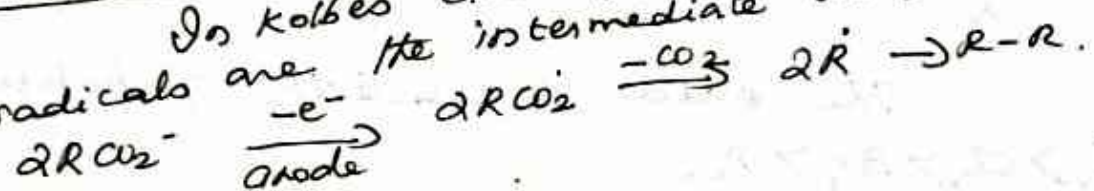 In Kolbes
radicals are the intermediate
2RCO₂⁻ —(-e⁻ / anode)→ 2RCO₂˙ —(-CO₂)→ 2Ṙ → R-R.